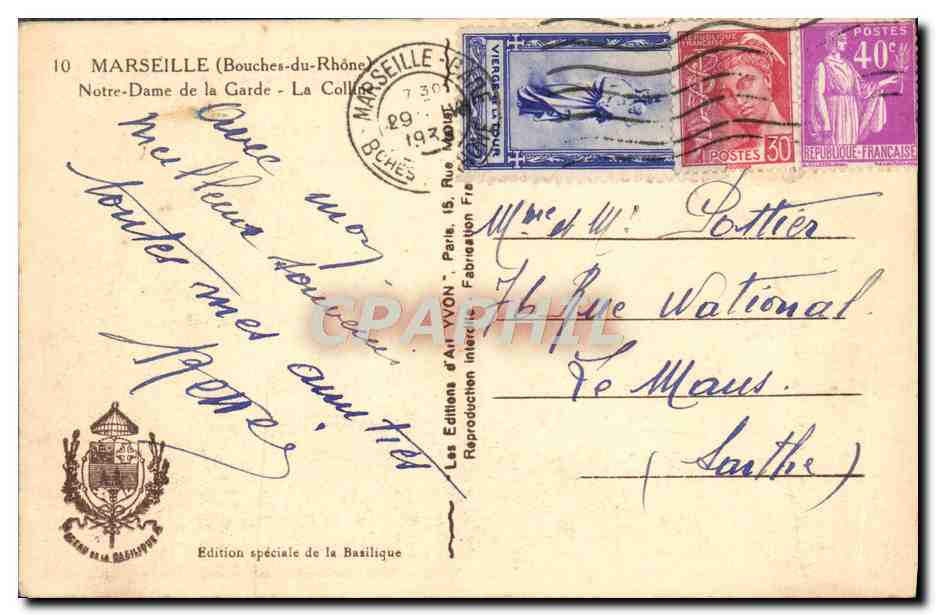 10 MARSEILLE (Bouches-du-Rhône)
Notre-Dame de la Garde - La Colline
MARSEILLE - GARE
7 30
29
193
BCHES
VIERGE DE LA TOUR
REPUBLIQUE FRANÇAISE
POSTES 30c
POSTES
40c
REPUBLIQUE-FRANCAISE
Avec mon
meilleur souvenir
toutes mes amities
Les Editions d'Art "YVON", Paris, 15, Rue
Reproduction interdite Fabrication Fra
Mme et Mr Pottier
76 Rue National
Le Mans.
(Sarthe)
CPAPHIL
SCEAU DE LA BASILIQUE
Edition spéciale de la Basilique